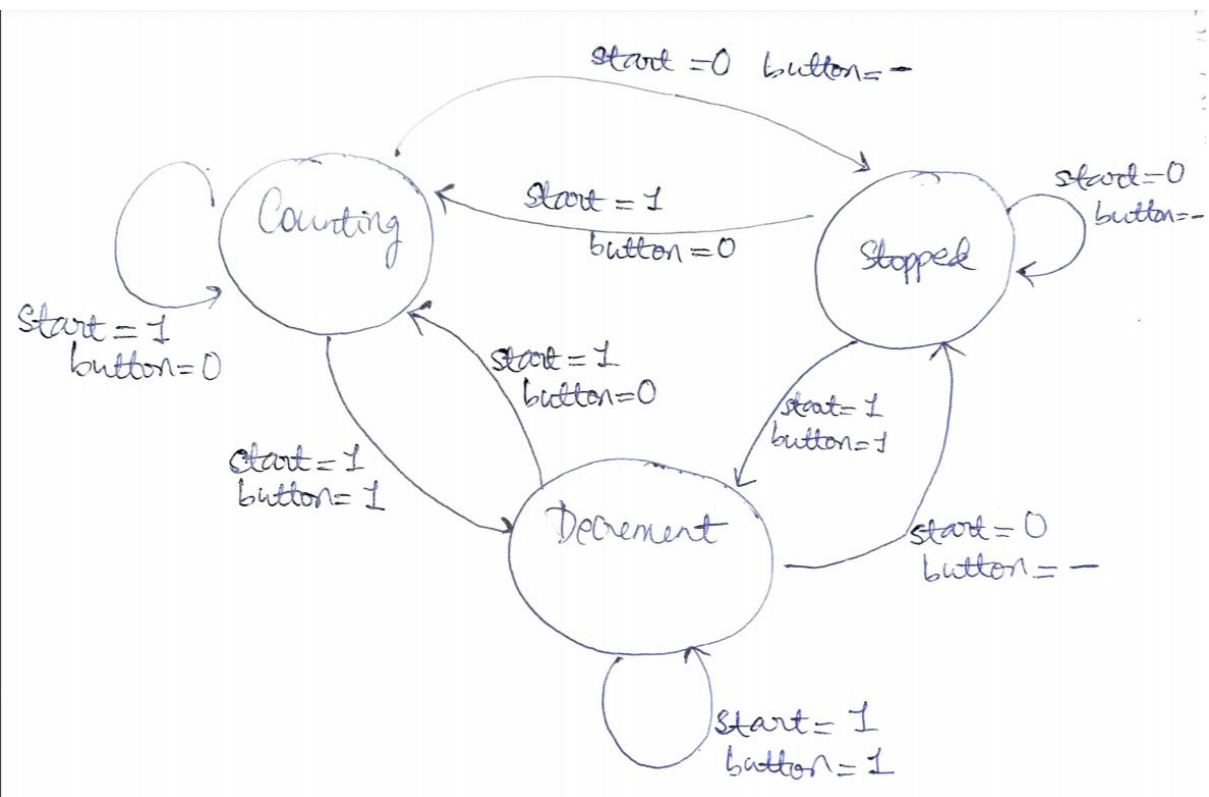 start =0 button= -
start=0
button=-
start = 1
button=0
Counting
Stopped
start = 1
button=0
start = 1
button=0
start= 1
button=1
start= 1
button= 1
Decrement
start= 0
button= —
start= 1
button= 1